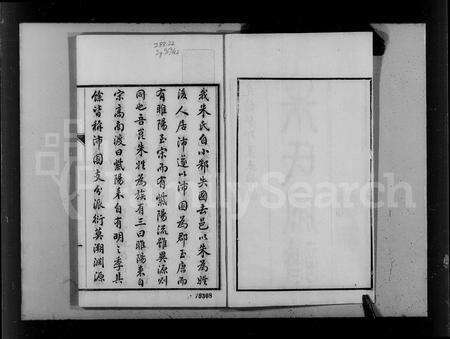 288.22
我朱氏自小邾失國去邑以朱為姓
後人居沛遂以沛國為郡至唐而
有睢陽至宋而有紫陽流雖異源則
同也吾莨朱姓為族有三曰睢陽来自
宗高南渡曰紫陽来自有明之季其
餘皆称沛國支分派衍莫溯淵源
FamilySearch
19308